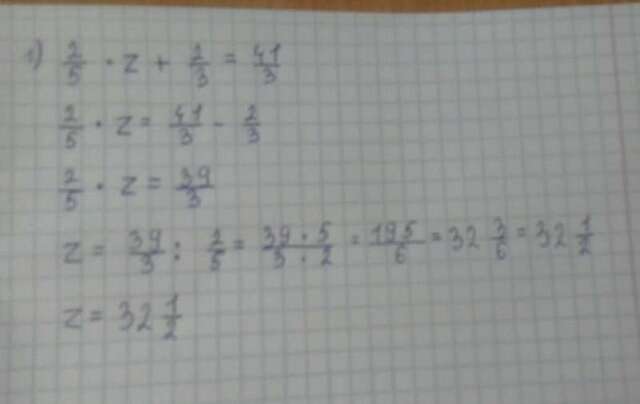 1) 2/5 · z + 2/3 = 41/3
2/5 · z = 41/3 - 2/3
2/5 · z = 39/3
z = 39/3 : 2/5 = 39 · 5/3 · 2 = 195/6 = 32 3/6 = 32 1/2
z = 32 1/2